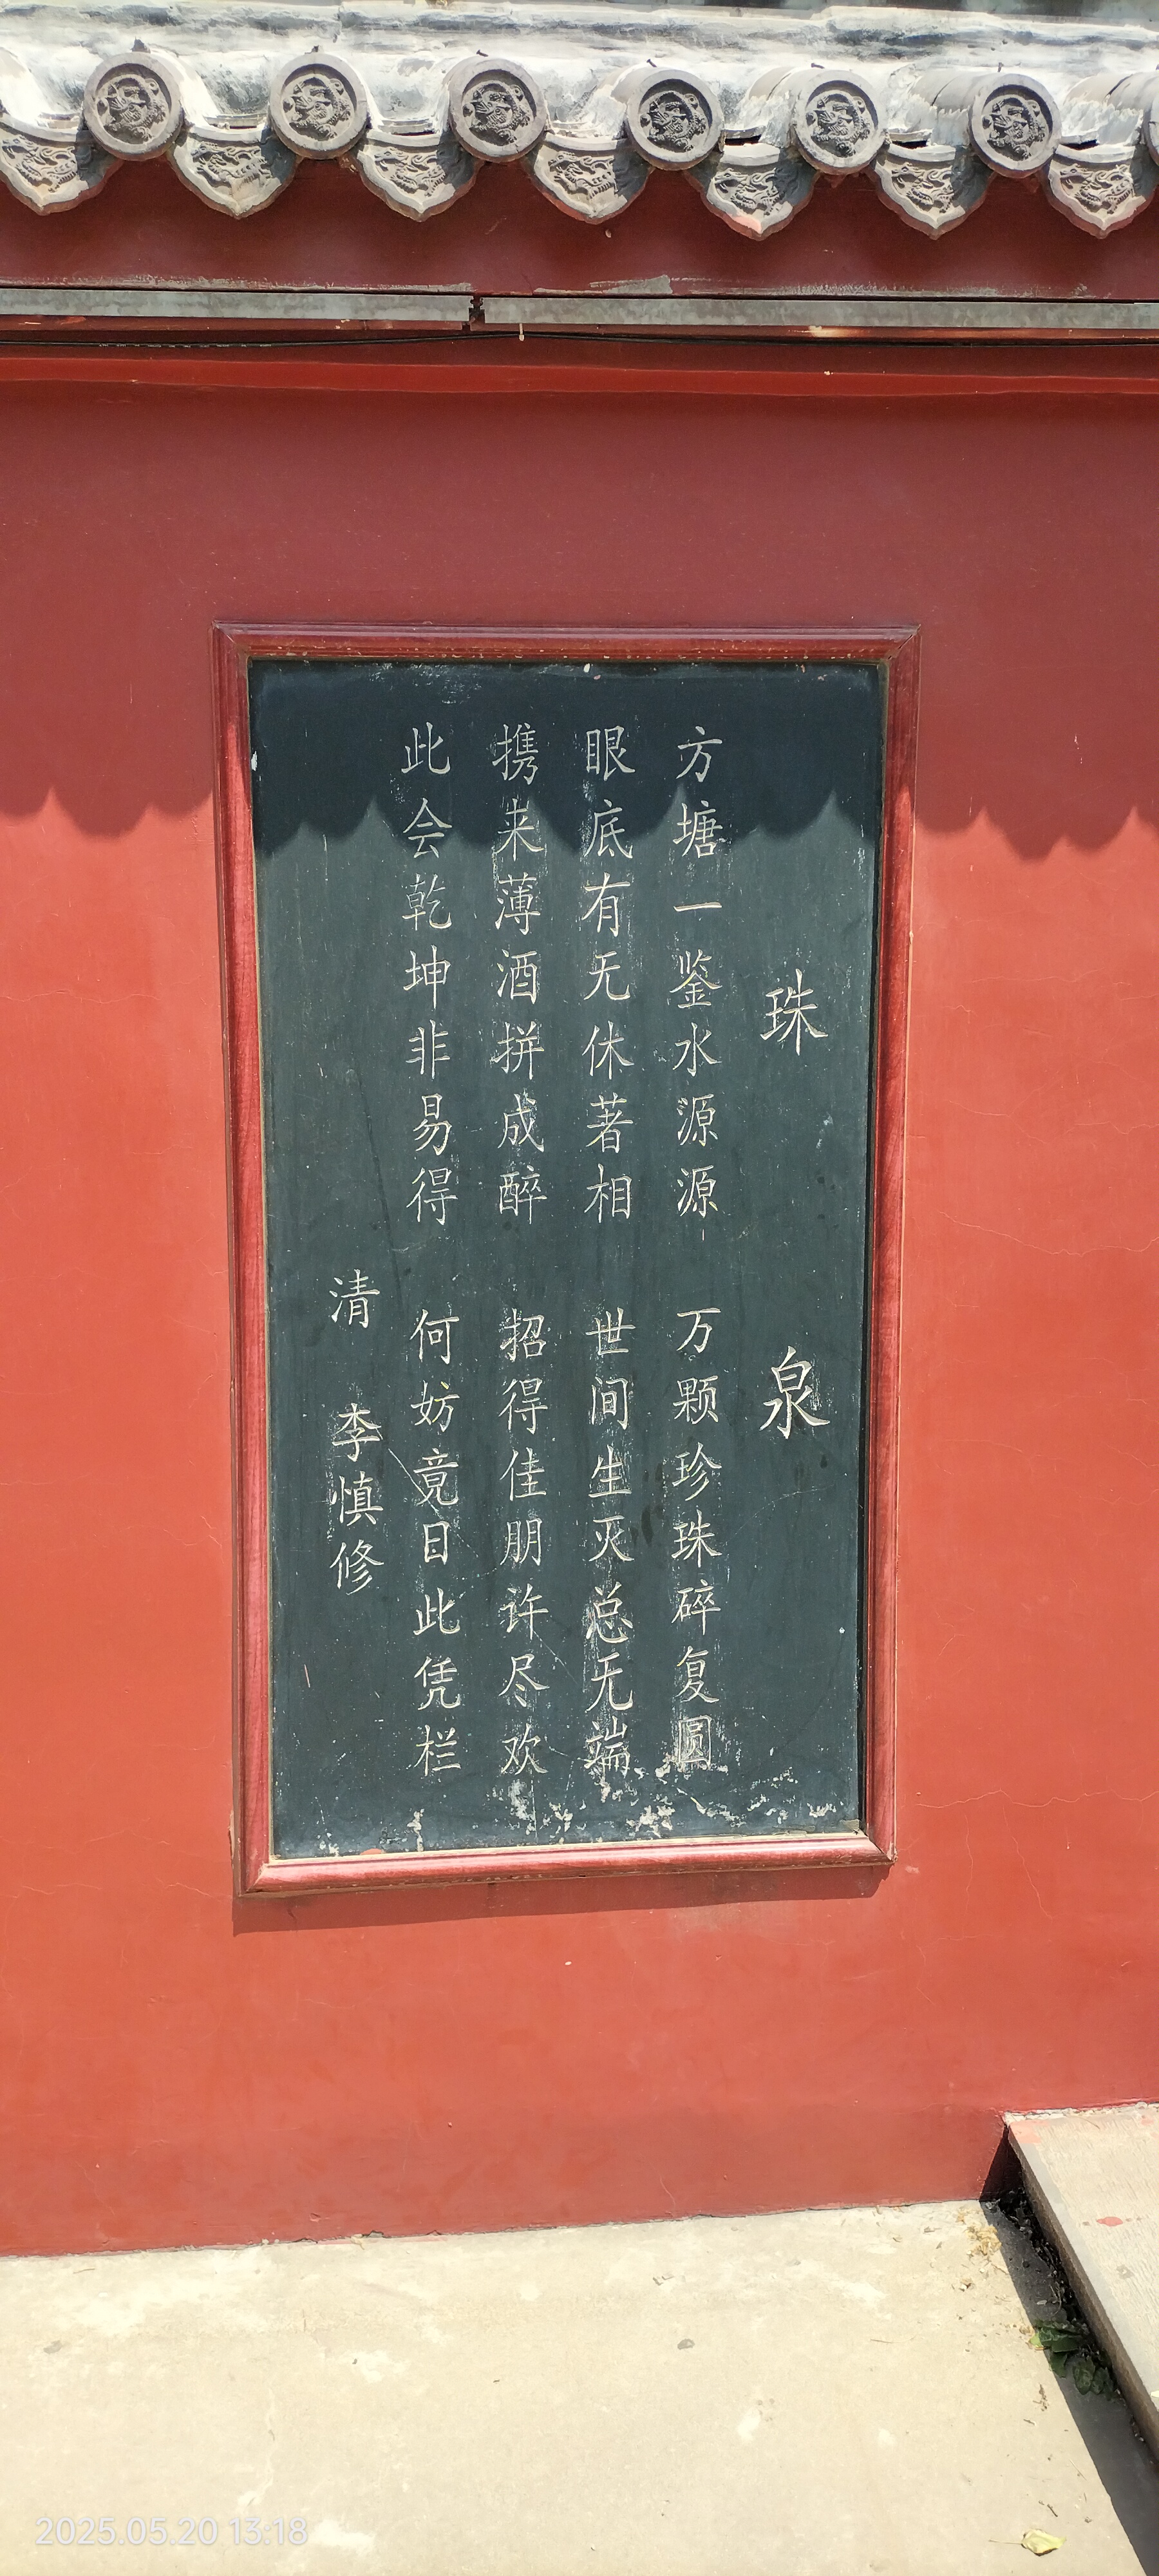 珠泉
方塘一鉴水源源 万颗珍珠碎复圆
眼底有无休著相 世间生灭总无端
携来薄酒拼成醉 招得佳朋许尽欢
此会乾坤非易得 何妨竟日此凭栏
清 李慎修
2025.05.20 13:18